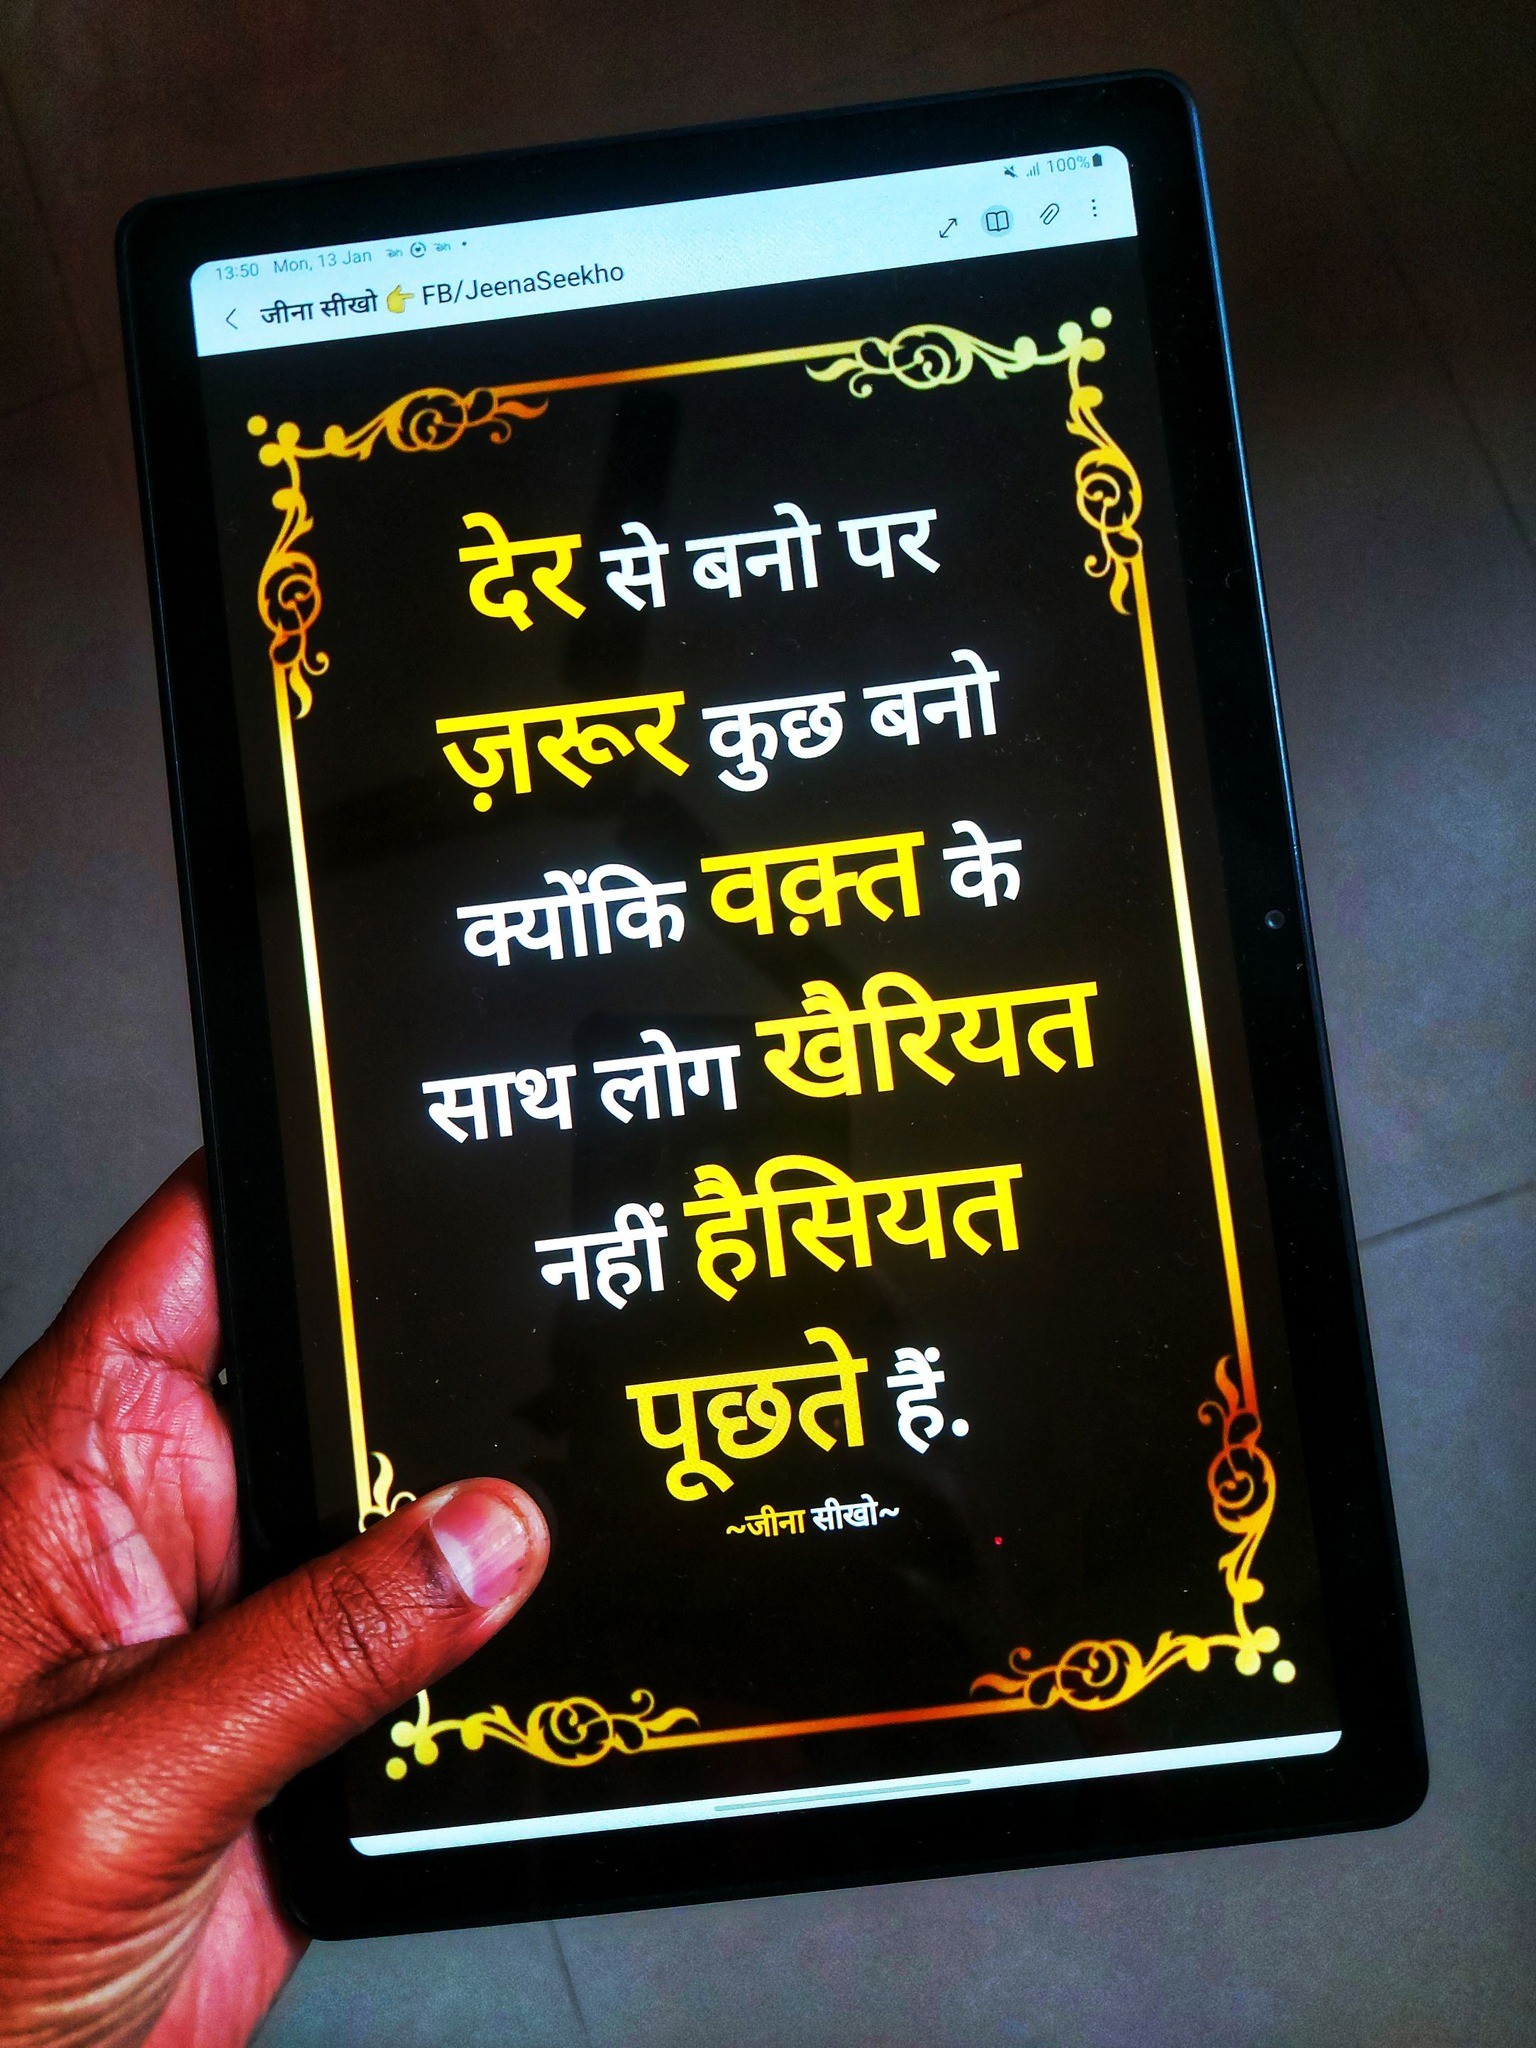 13:50 Mon, 13 Jan 100%
जीना सीखो 👉 FB/JeenaSeekho
देर से बनो पर
ज़रूर कुछ बनो
क्योंकि वक़्त के
साथ लोग खैरियत
नहीं हैसियत
पूछते हैं.
~जीना सीखो~